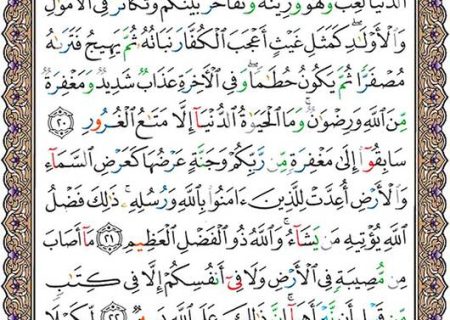 الدُّنْيَا لَعِبٌ وَلَهْوٌ وَزِينَةٌ وَتَفَاخُرٌ بَيْنَكُمْ وَتَكَاثُرٌ فِي الْأَمْوَٰلِ
وَالْأَوْلَٰدِ كَمَثَلِ غَيْثٍ أَعْجَبَ الْكُفَّارَ نَبَاتُهُ ثُمَّ يَهِيجُ فَتَرَىٰهُ
مُصْفَرًّا ثُمَّ يَكُونُ حُطَٰمًا وَفِي الْآخِرَةِ عَذَابٌ شَدِيدٌ وَمَغْفِرَةٌ
مِّنَ اللَّهِ وَرِضْوَٰنٌ وَمَا الْحَيَوٰةُ الدُّنْيَا إِلَّا مَتَٰعُ الْغُرُورِ ٢٠
سَابِقُوا إِلَىٰ مَغْفِرَةٍ مِّن رَّبِّكُمْ وَجَنَّةٍ عَرْضُهَا كَعَرْضِ السَّمَاءِ
وَالْأَرْضِ أُعِدَّتْ لِلَّذِينَ ءَامَنُوا بِاللَّهِ وَرُسُلِهِ ذَٰلِكَ فَضْلُ
اللَّهِ يُؤْتِيهِ مَن يَشَاءُ وَاللَّهُ ذُو الْفَضْلِ الْعَظِيمِ ٢١ مَا أَصَابَ
مِن مُّصِيبَةٍ فِي الْأَرْضِ وَلَا فِي أَنفُسِكُمْ إِلَّا فِي كِتَٰبٍ
مِّن قَبْلِ أَن نَّبْرَأَهَا إِنَّ ذَٰلِكَ عَلَى اللَّهِ يَسِيرٌ ٢٢ لِّكَيْلَا